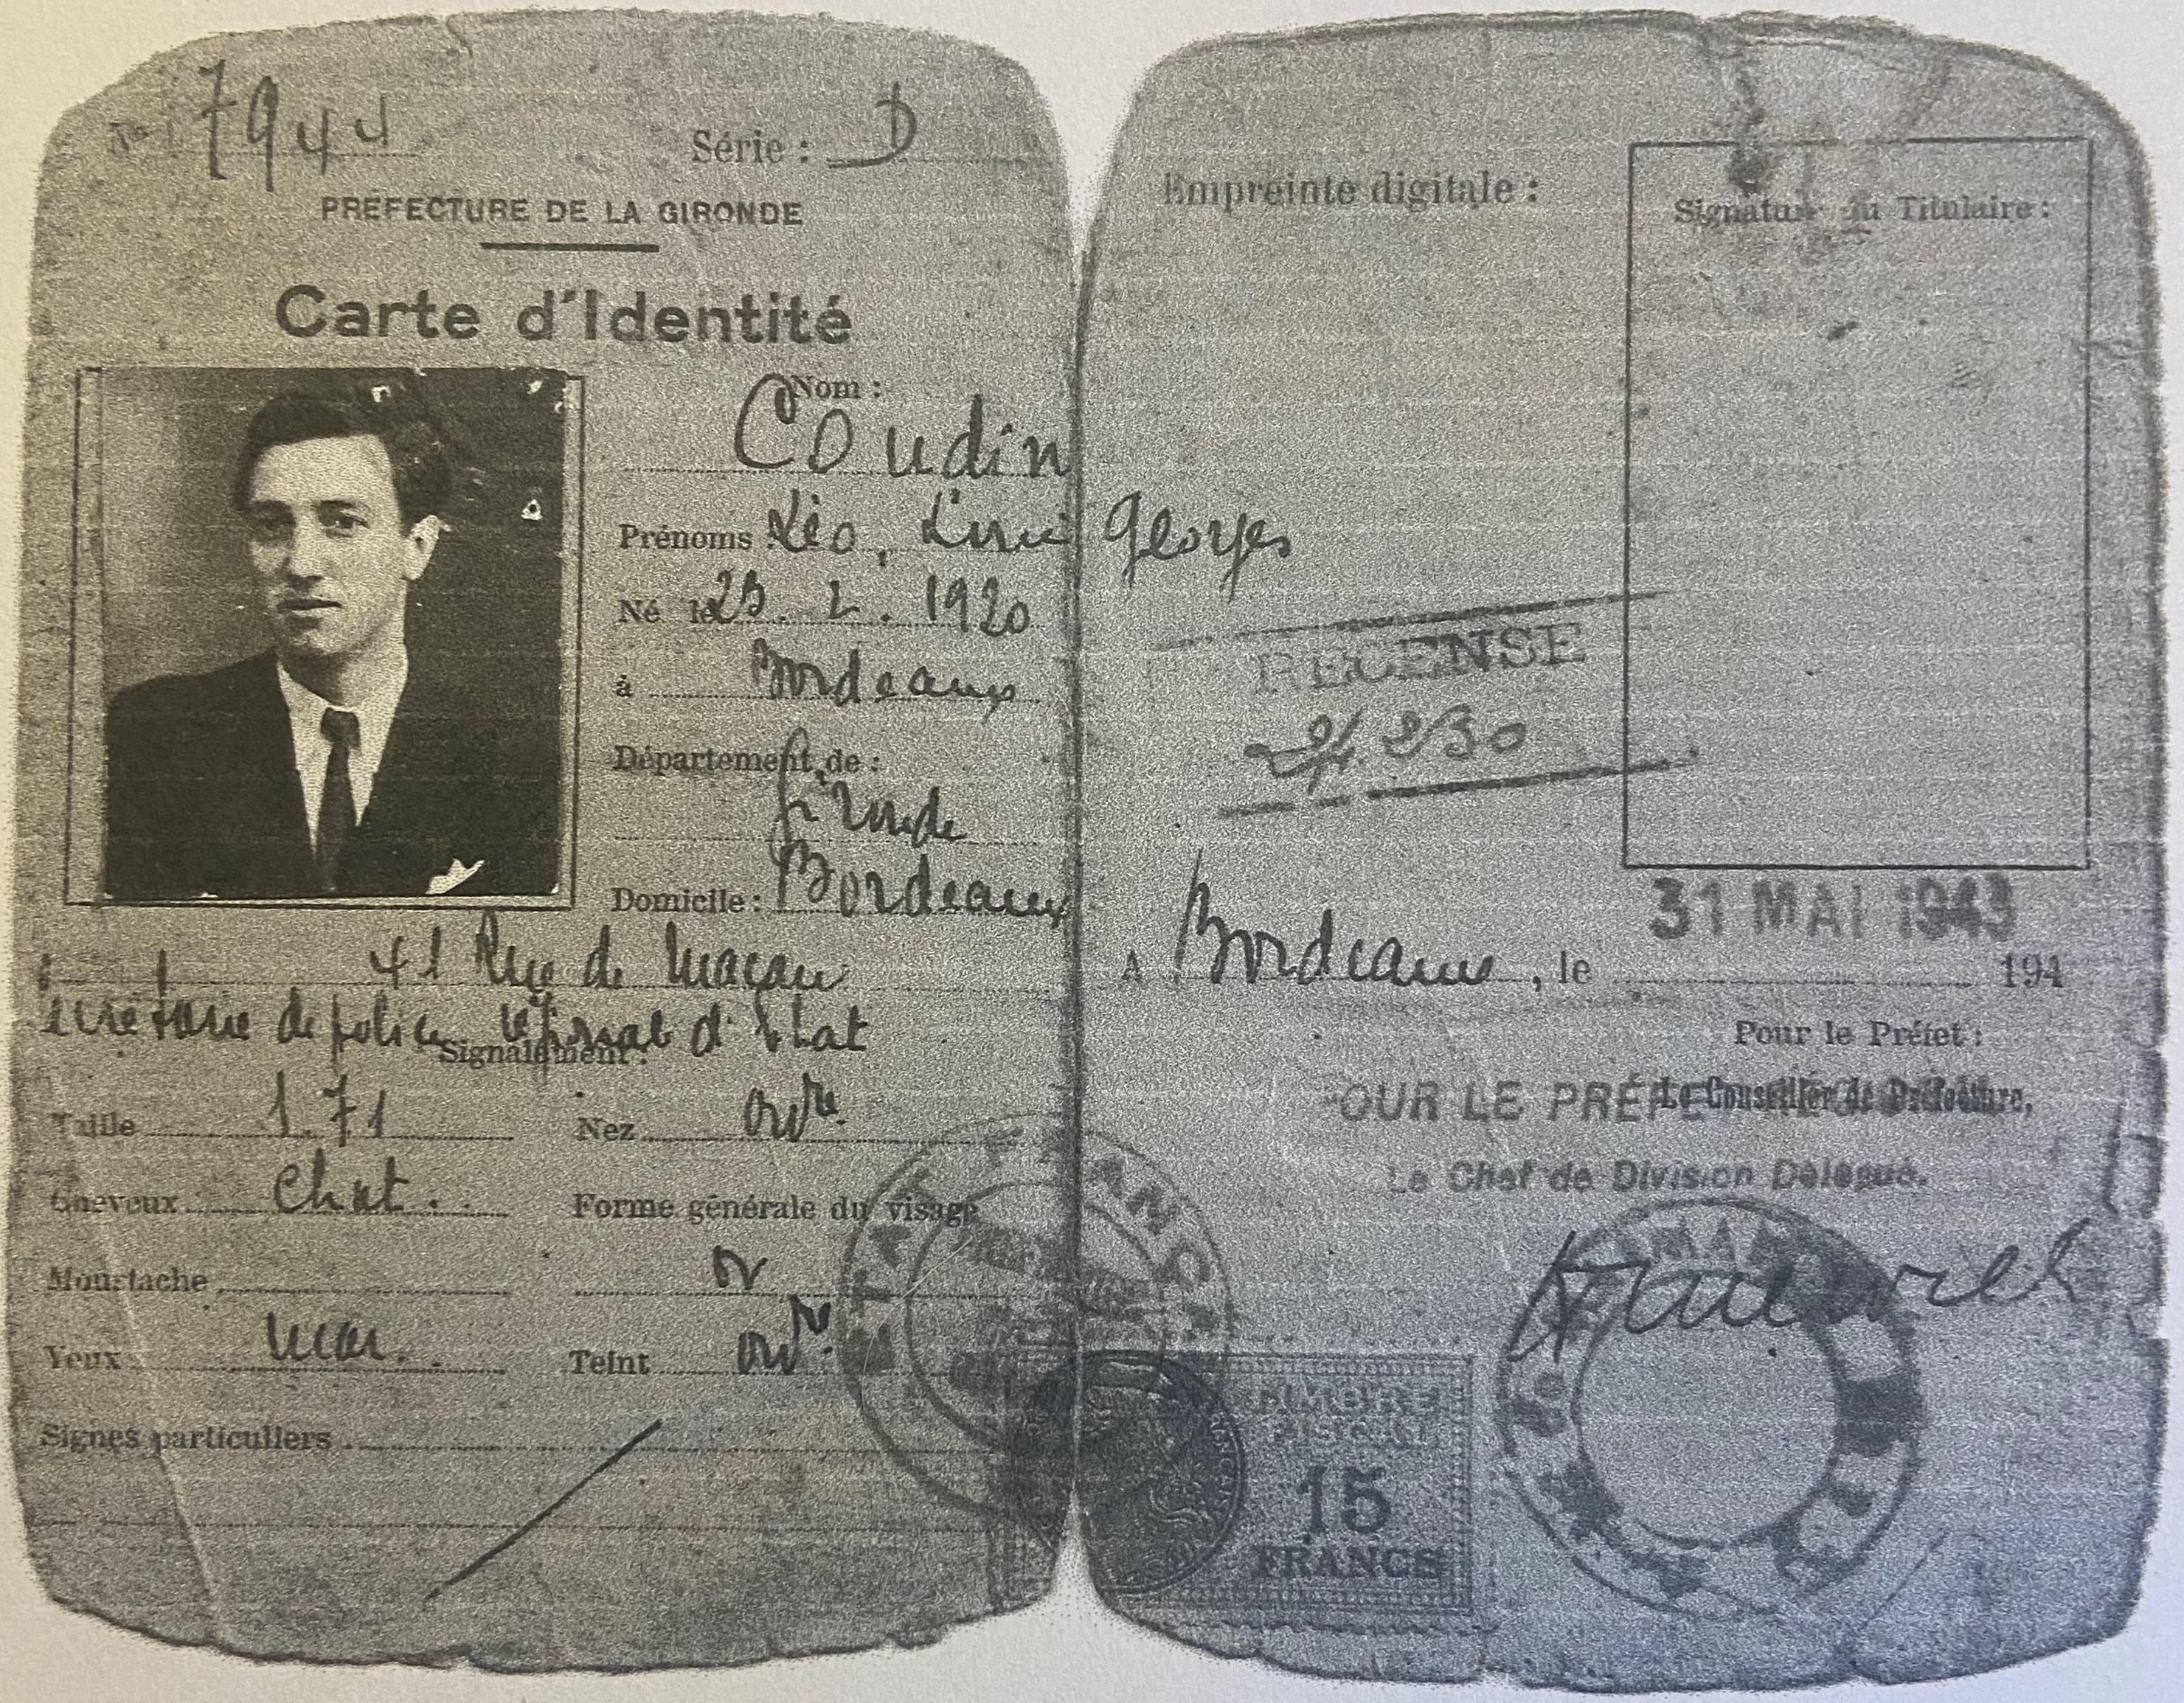 N° 7944
Série : D
PRÉFECTURE DE LA GIRONDE
Carte d'Identité
Nom :
Coudin
Prénoms : Léo, Georges
Né le 1920
à Bordeaux
Département de :
Gironde
Domicile : Bordeaux
41 Rue de Macau
de police d'Etat
Signalement :
Taille 1.71
Nez ord re
Cheveux chat.
Forme générale du visage
ov
Moustache
Yeux mar.
Teint
Signes particuliers
ETAT FRANÇAIS
Empreinte digitale :
Signature du Titulaire :
RECENSE
A Bordeaux, le 31 MAI 1943 194
Pour le Préfet :
Le Conseiller de Préfecture,
OUR LE PRÉFE
Le Chef de Division Délégué.
TIMBRE
FISCAL
15
FRANCS